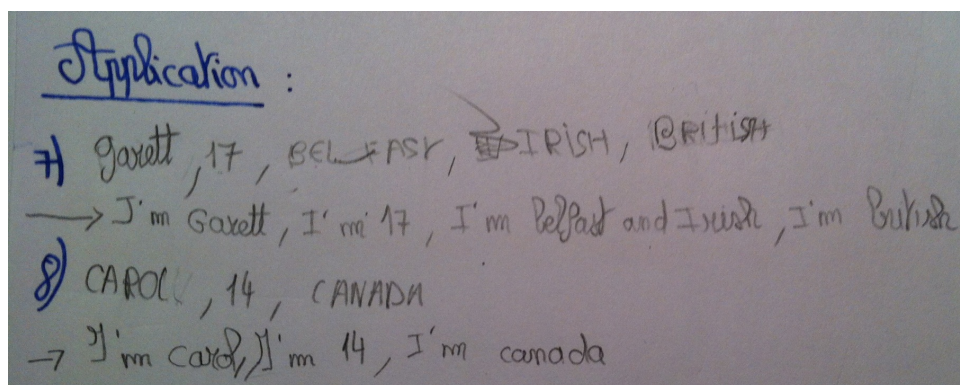 Application :
7) Garett, 17, BELFAST, IRISH, BRitish
→ I'm Garett, I'm 17, I'm Belfast and Irish, I'm British
8) CAROL, 14, CANADA
→ I'm carol, I'm 14, I'm canada